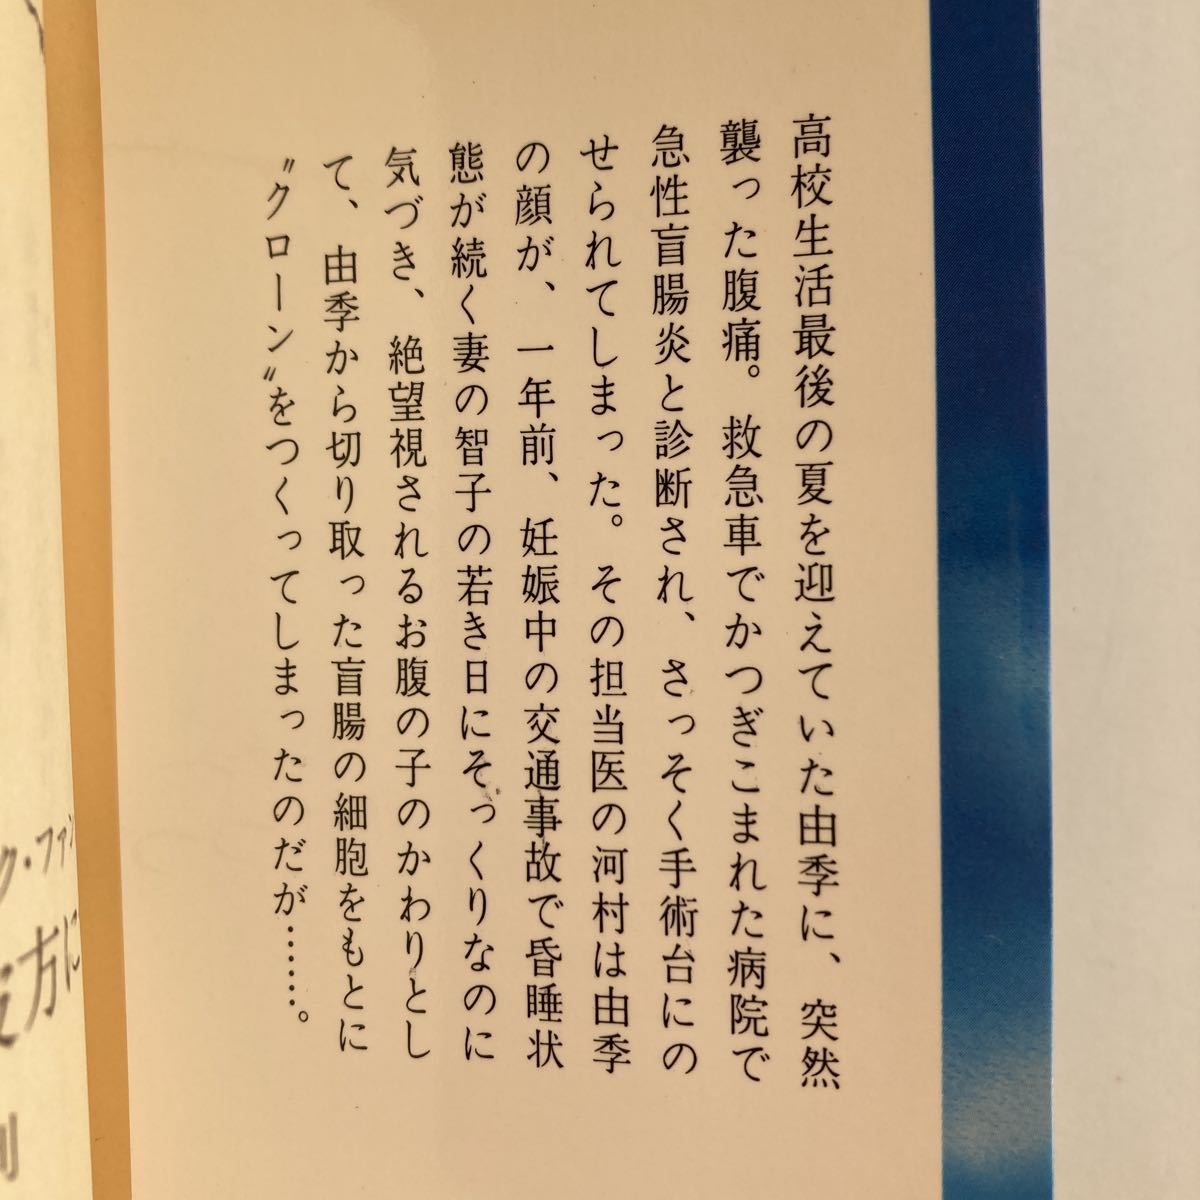 高校生活最後の夏を迎えていた由季に、突然
襲った腹痛。救急車でかつぎこまれた病院で
急性盲腸炎と診断され、さっそく手術台にの
せられてしまった。その担当医の河村は由季
の顔が、一年前、妊娠中の交通事故で昏睡状
態が続く妻の智子の若き日にそっくりなのに
気づき、絶望視されるお腹の子のかわりとし
て、由季から切り取った盲腸の細胞をもとに
〝クローン〟をつくってしまったのだが……。
ク・ファン
方に